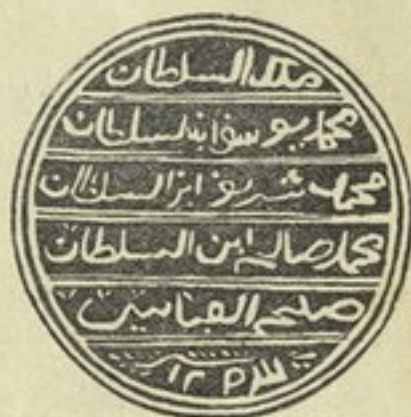 ملك السلطان
محمد يوسف ابن السلطان
محمد شريف ابن السلطان
محمد صالح ابن السلطان
صليح العباسين